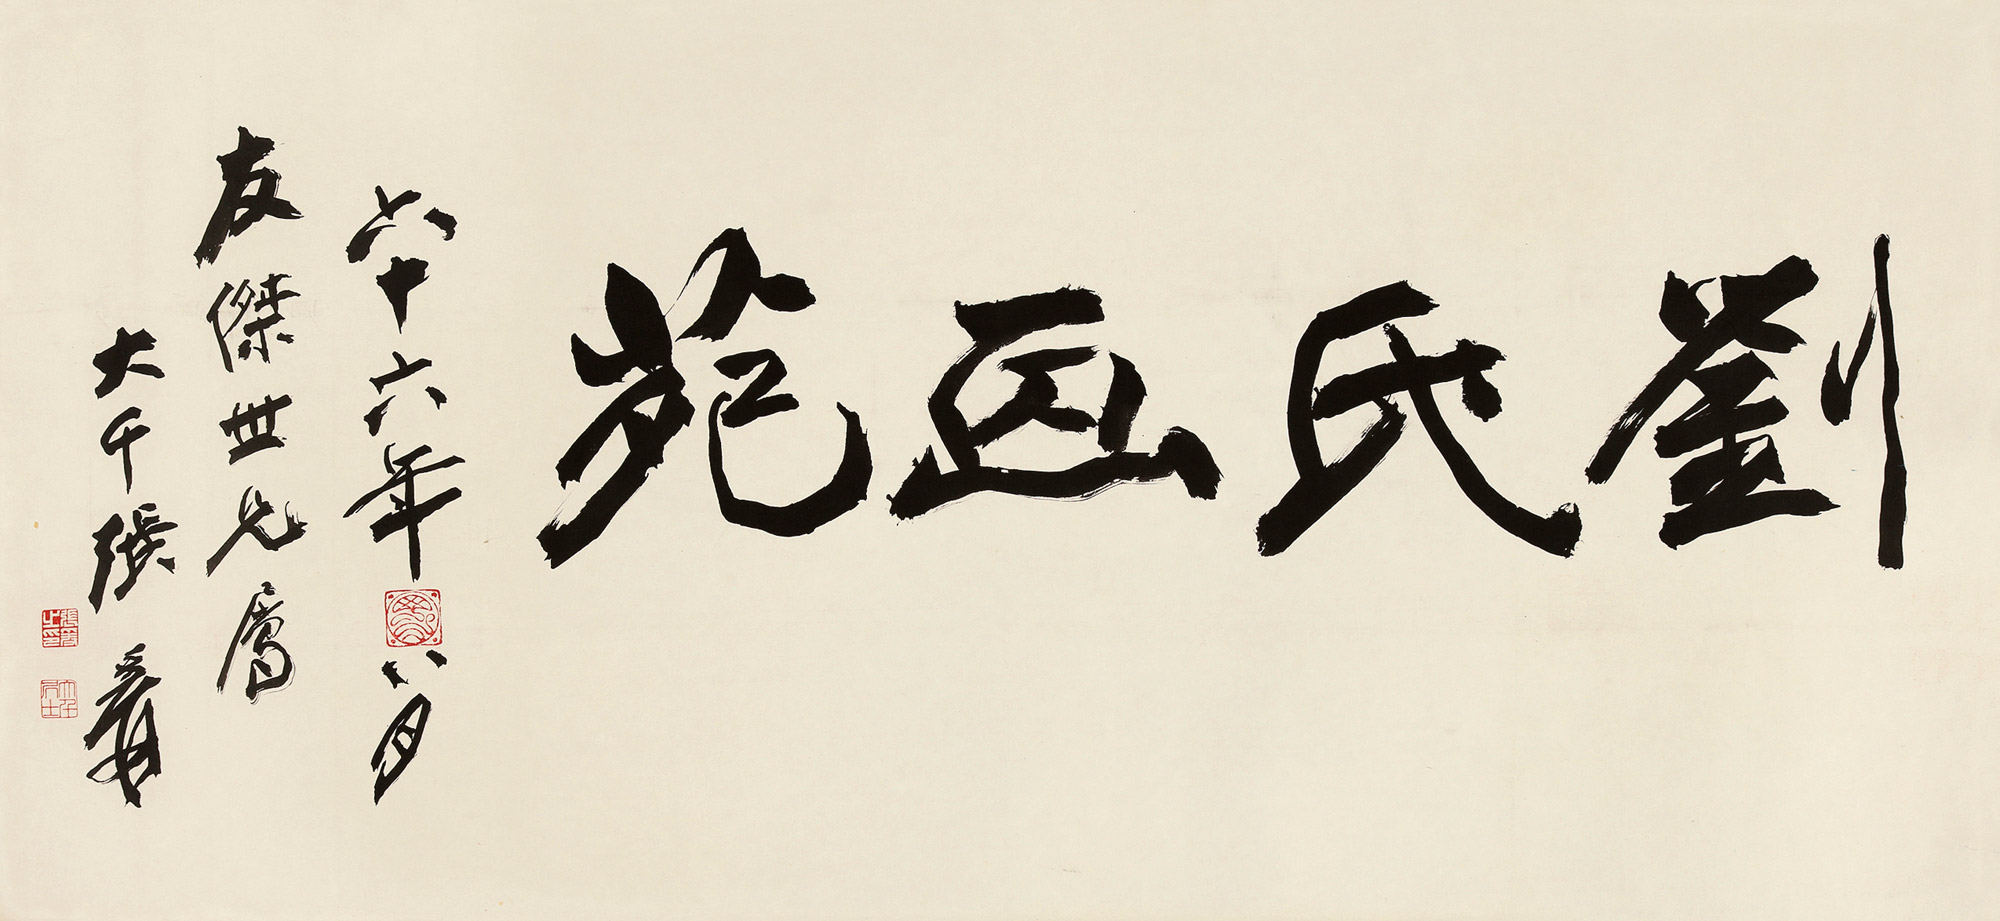 劉氏画苑
六十六年八月
友傑世兄屬
大千張爰
張爰之印
大千居士